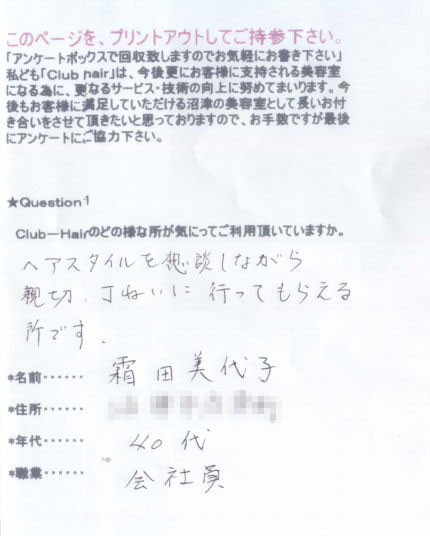 このページを、プリントアウトしてご持参下さい。
「アンケートボックスで回収致しますのでお気軽にお書き下さい」
私ども「Club hair」は、今後更にお客様に支持される美容室
になる為に、更なるサービス・技術の向上に努めてまいります。今
後もお客様に満足していただける沼津の美容室として長いお付
き合いをさせて頂きたいと思っておりますので、お手数ですが最後
にアンケートにご協力下さい。
★Question1
Club－Hairのどの様な所が気にってご利用頂いていますか。
ヘアスタイルを想談しながら
親切、丁ねいに行ってもらえる
所です。
*名前・・・・・・ 霜田美代子
*住所・・・・・・
*年代・・・・・・ 40代
*職業・・・・・・ 会社員